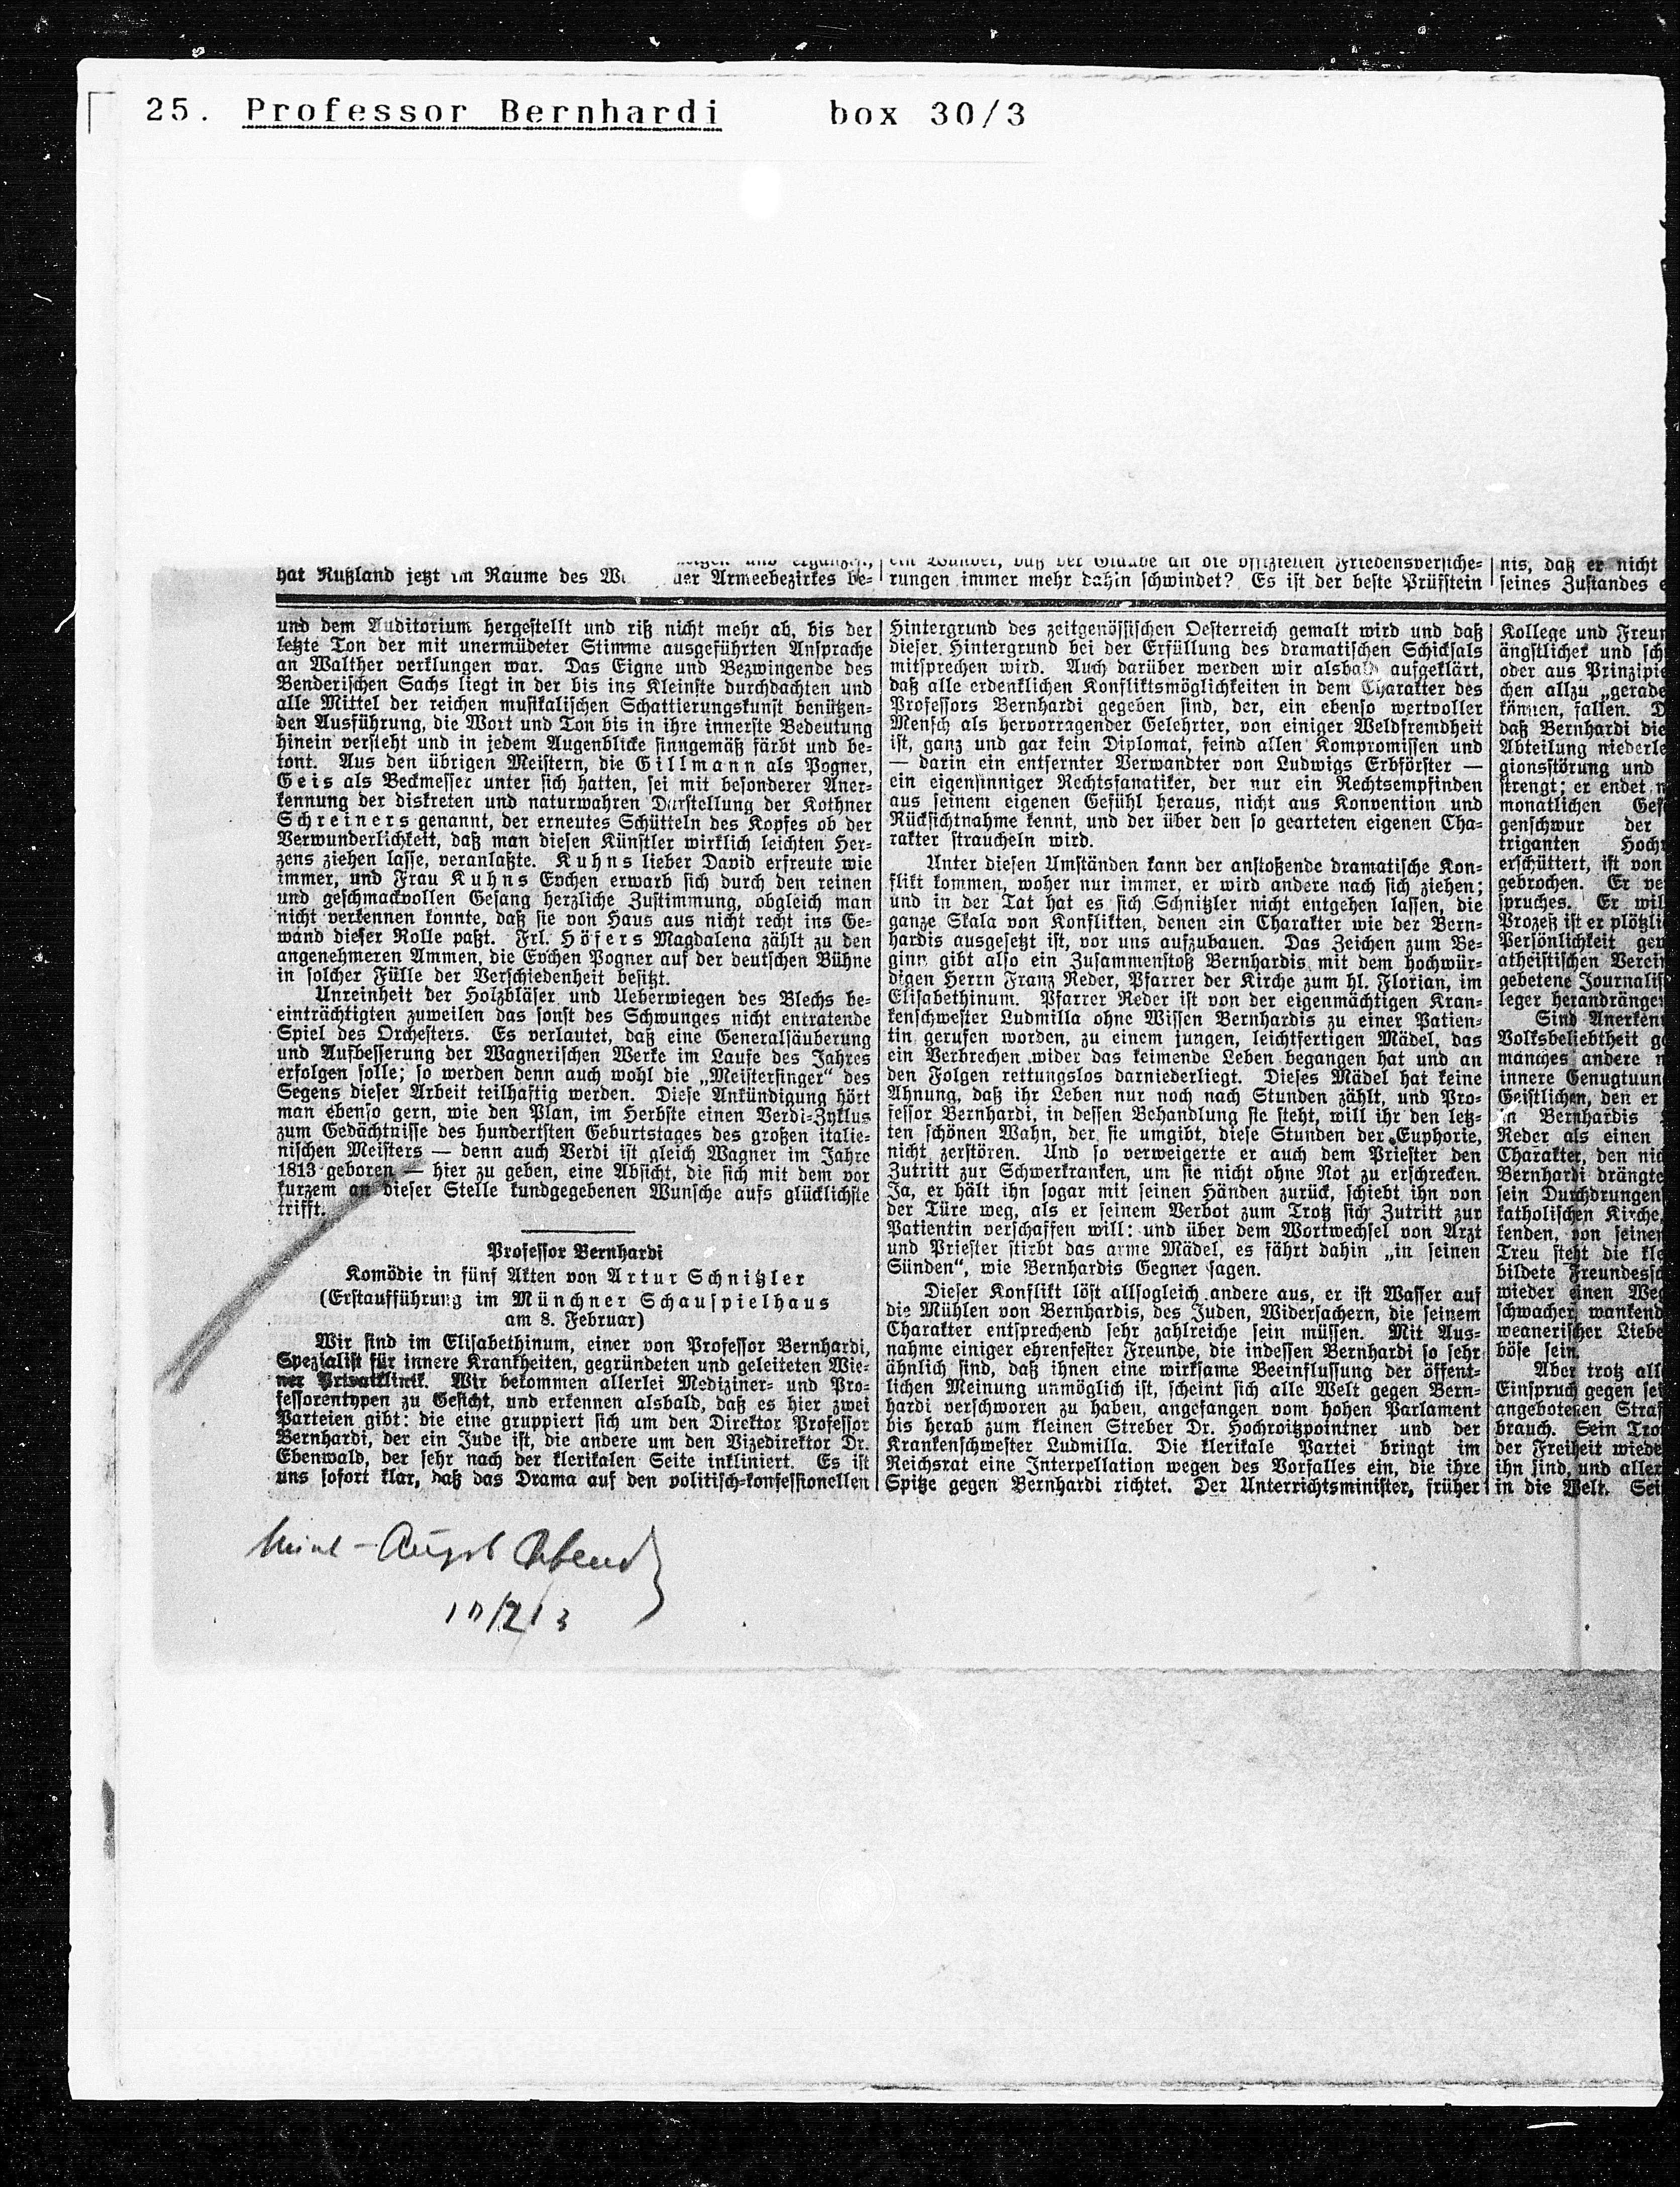 25. Professor Bernhardi box 30/3
hat Rußland jetzt im Raume des der Armeebezirkes be-
und dem Auditorium hergestellt und riß nicht mehr ab, bis der
letzte Ton der mit unermüdeter Stimme ausgeführten Ansprache
an Walther verklungen war. Das Eigne und Bezwingende des
Benderischen Sachs liegt in der bis ins Kleinste durchdachten und
alle Mittel der reichen musikalischen Schattierungskunst benützen-
den Ausführung, die Wort und Ton bis in ihre innerste Bedeutung
hinein versteht und in jedem Augenblicke sinngemäß färbt und be-
tont. Aus den übrigen Meistern, die Gillmann als Pogner,
Geis als Beckmesser unter sich hatten, sei mit besonderer Aner-
kennung der diskreten und naturwahren Darstellung der Kothner
Schreiners genannt, der erneutes Schütteln des Kopfes ob der
Verwunderlichkeit, daß man diesen Künstler wirklich leichten Her-
zens ziehen lasse, veranlaßte. Kuhns lieber David erfreute wie
immer, und Frau Kuhns Evchen erwarb sich durch den reinen
und geschmackvollen Gesang herzliche Zustimmung, obgleich man
nicht verkennen konnte, daß sie von Haus aus nicht recht ins Ge-
wand dieser Rolle paßt. Frl. Höfers Magdalena zählt zu den
angenehmeren Ammen, die Evchen Pogner auf der deutschen Bühne
in solcher Fülle der Verschiedenheit besitzt.
Unreinheit der Holzbläser und Ueberwiegen des Blechs be-
einträchtigten zuweilen das sonst des Schwunges nicht entratende
Spiel des Orchesters. Es verlautet, daß eine Generalsäuberung
und Aufbesserung der Wagnerischen Werke im Laufe des Jahres
erfolgen solle; so werden denn auch wohl die „Meistersinger“ des
Segens dieser Arbeit teilhaftig werden. Diese Ankündigung hört
man ebenso gern, wie den Plan, im Herbste einen Verdi-Zyklus
zum Gedächtnisse des hundertsten Geburtstages des großen italie-
nischen Meisters — denn auch Verdi ist gleich Wagner im Jahre
1813 geboren — hier zu geben, eine Absicht, die sich mit dem vor
kurzem an dieser Stelle kundgegebenen Wunsche aufs glücklichste
trifft.
Professor Bernhardi
Komödie in fünf Akten von Artur Schnitzler
(Erstaufführung im Münchner Schauspielhaus
am 8. Februar)
Wir sind im Elisabethinum, einer von Professor Bernhardi,
Spezialist für innere Krankheiten, gegründeten und geleiteten Wie-
ner Privatklinik. Wir bekommen allerlei Mediziner- und Pro-
fessorentypen zu Gesicht, und erkennen alsbald, daß es hier zwei
Parteien gibt: die eine gruppiert sich um den Direktor Professor
Bernhardi, der ein Jude ist, die andere um den Vizedirektor Dr.
Ebenwald, der sehr nach der klerikalen Seite inkliniert. Es ist
uns sofort klar, daß das Drama auf den politisch-konfessionellen
ein Wunder, daß der Glaube an die offiziellen Friedensversiche-
rungen immer mehr dahin schwindet? Es ist der beste Prüfstein
Hintergrund des zeitgenössischen Oesterreich gemalt wird und daß
dieser Hintergrund bei der Erfüllung des dramatischen Schicksals
mitsprechen wird. Auch darüber werden wir alsbald aufgeklärt,
daß alle erdenklichen Konfliktsmöglichkeiten in dem Charakter des
Professors Bernhardi gegeben sind, der, ein ebenso wertvoller
Mensch als hervorragender Gelehrter, von einiger Weldfremdheit
ist, ganz und gar kein Diplomat, feind allen Kompromissen und
— darin ein entfernter Verwandter von Ludwigs Erbförster —
ein eigensinniger Rechtsfanatiker, der nur ein Rechtsempfinden
aus seinem eigenen Gefühl heraus, nicht aus Konvention und
Rücksichtnahme kennt, und der über den so gearteten eigenen Cha-
rakter straucheln wird.
Unter diesen Umständen kann der anstoßende dramatische Kon-
flikt kommen, woher nur immer, er wird andere nach sich ziehen;
und in der Tat hat es sich Schnitzler nicht entgehen lassen, die
ganze Skala von Konflikten, denen ein Charakter wie der Bern-
hardis ausgesetzt ist, vor uns aufzubauen. Das Zeichen zum Be-
ginn gibt also ein Zusammenstoß Bernhardis mit dem hochwür-
digen Herrn Franz Reder, Pfarrer der Kirche zum hl. Florian, im
Elisabethinum. Pfarrer Reder ist von der eigenmächtigen Kran-
kenschwester Ludmilla ohne Wissen Bernhardis zu einer Patien-
tin gerufen worden, zu einem jungen, leichtfertigen Mädel, das
ein Verbrechen wider das keimende Leben begangen hat und an
den Folgen rettungslos darniederliegt. Dieses Mädel hat keine
Ahnung, daß ihr Leben nur noch nach Stunden zählt, und Pro-
fessor Bernhardi, in dessen Behandlung sie steht, will ihr den letz-
ten schönen Wahn, der sie umgibt, diese Stunden der Euphorie,
nicht zerstören. Und so verweigerte er auch dem Priester den
Zutritt zur Schwerkranken, um sie nicht ohne Not zu erschrecken.
Ja, er hält ihn sogar mit seinen Händen zurück, schiebt ihn von
der Türe weg, als er seinem Verbot zum Trotz sich Zutritt zur
Patientin verschaffen will: und über dem Wortwechsel von Arzt
und Priester stirbt das arme Mädel, es fährt dahin „in seinen
Sünden“, wie Bernhardis Gegner sagen.
Dieser Konflikt löst allsogleich andere aus, er ist Wasser auf
die Mühlen von Bernhardis, des Juden, Widersachern, die seinem
Charakter entsprechend sehr zahlreiche sein müssen. Mit Aus-
nahme einiger ehrenfester Freunde, die indessen Bernhardi so sehr
ähnlich sind, daß ihnen eine wirksame Beeinflussung der öffent-
lichen Meinung unmöglich ist, scheint sich alle Welt gegen Bern-
hardi verschworen zu haben, angefangen vom hohen Parlament
bis herab zum kleinen Streber Dr. Hochroitzpointner und der
Krankenschwester Ludmilla. Die klerikale Partei bringt im
Reichsrat eine Interpellation wegen des Vorfalles ein, die ihre
Spitze gegen Bernhardi richtet. Der Unterrichtsminister, früher
nis, daß er nicht
seines Zustandes
Kollege und Freun
ängstlicher und sch
oder aus Prinzipie
chen allzu „gerade
können, fallen. D
daß Bernhardi die
Abteilung niederle
gionsstörung und
strengt; er endet
monatlichen Gef
genschwur der
triganten Hoch
erschüttert, ist von
gebrochen. Er ve
spruches. Er wil
Prozeß ist er plötzli
Persönlichkeit
atheistischen Verein
gebetene Journalis
leger herandränge
Sind Anerken
Volksbeliebtheit g
manches andere n
innere Genugtuun
Geistlichen, den er
in Bernhardis
Reder als einen
Charakter, den nic
Bernhardi drängte
sein Durchdrungen
katholischen Kirche,
kenden, von seinen
Treu steht die kle
bildete Freundess
wieder einen Weg
schwacher, wankend
weanerischer Liebe
böse sein.
Aber trotz all
Einspruch gegen sei
angebotenen Straf
brauch. Sein Tro
der Freiheit wiede
ihn sind, und aller
in die Welt. Sei
Münch-Augsb Abendz
10/2/3